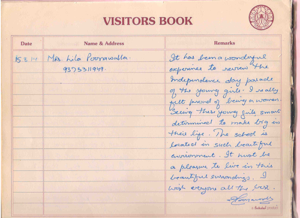 VISITORS BOOK
Date
Name & Address
Remarks
Mrs Lila Poonawalla
It has been a wonderful
experience to review the
Independence day parade
of the young girls. I really
felt proud of being a woman
seeing these young girls smart
determined to make big in
their life. The school is
located in such beautiful
environment. It must be
a pleasure to live in this
beautiful surroundings. I
wish everyone all the best.